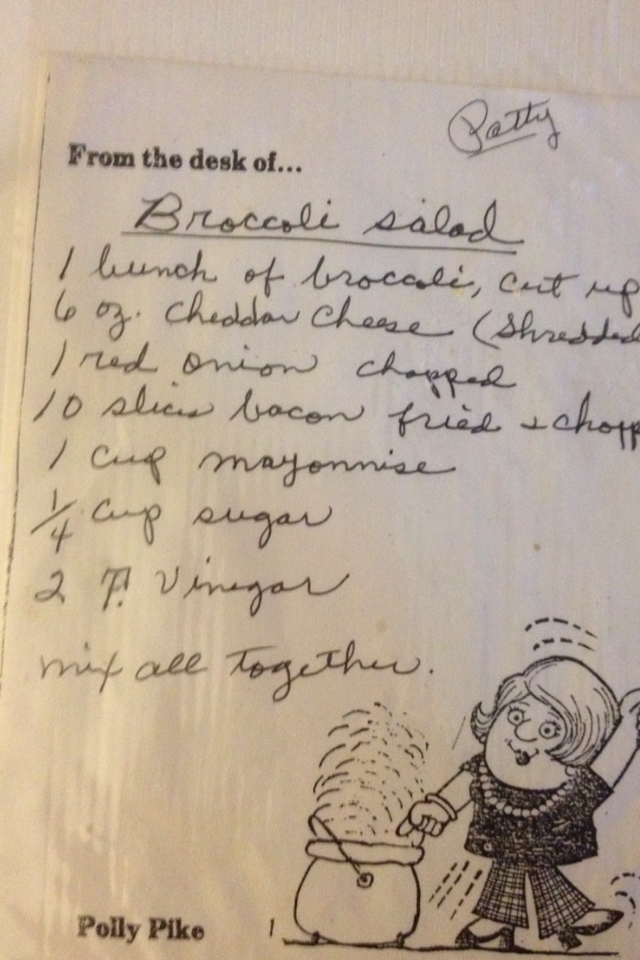 Patty
From the desk of...
Broccoli salad
1 bunch of broccoli, cut up
6 oz. cheddar cheese (shredded
1 red onion chopped
10 slices bacon fried & chopp
1 cup mayonnise
1/4 cup sugar
2 T. Vinegar
mix all together.
Polly Pike